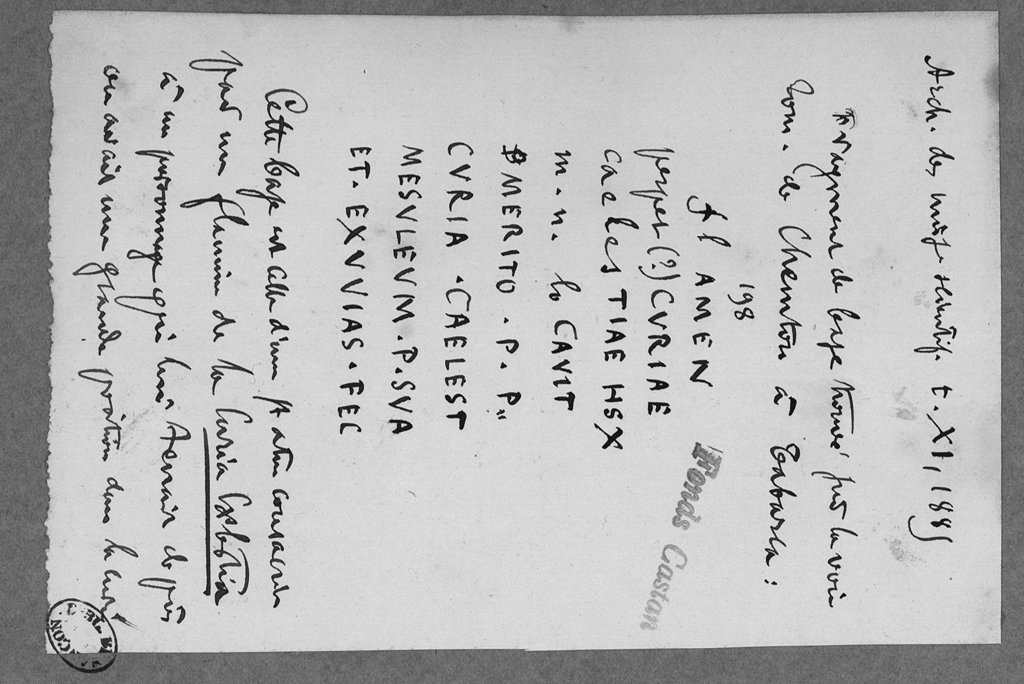 Arch. des miss. scientif. t. XI, 1885
Fragment de base trouvé sur la voie
rom. de Chemtou à Tabarca :
198
fl AMEN
perpet (?) CVRIAE
caeles TIAE HSX
m. n. lo CAVIT
MERITO . P . P
CVRIA . CAELEST
MESVLEVM . P . SVA
ET . EXVVIAS . FEC
Cette base est celle d'une statue consacrée
par un flamine de la Curia Cælestia
à un personnage qui lui tenait de près
on avait une grande dans la
Fonds Castan